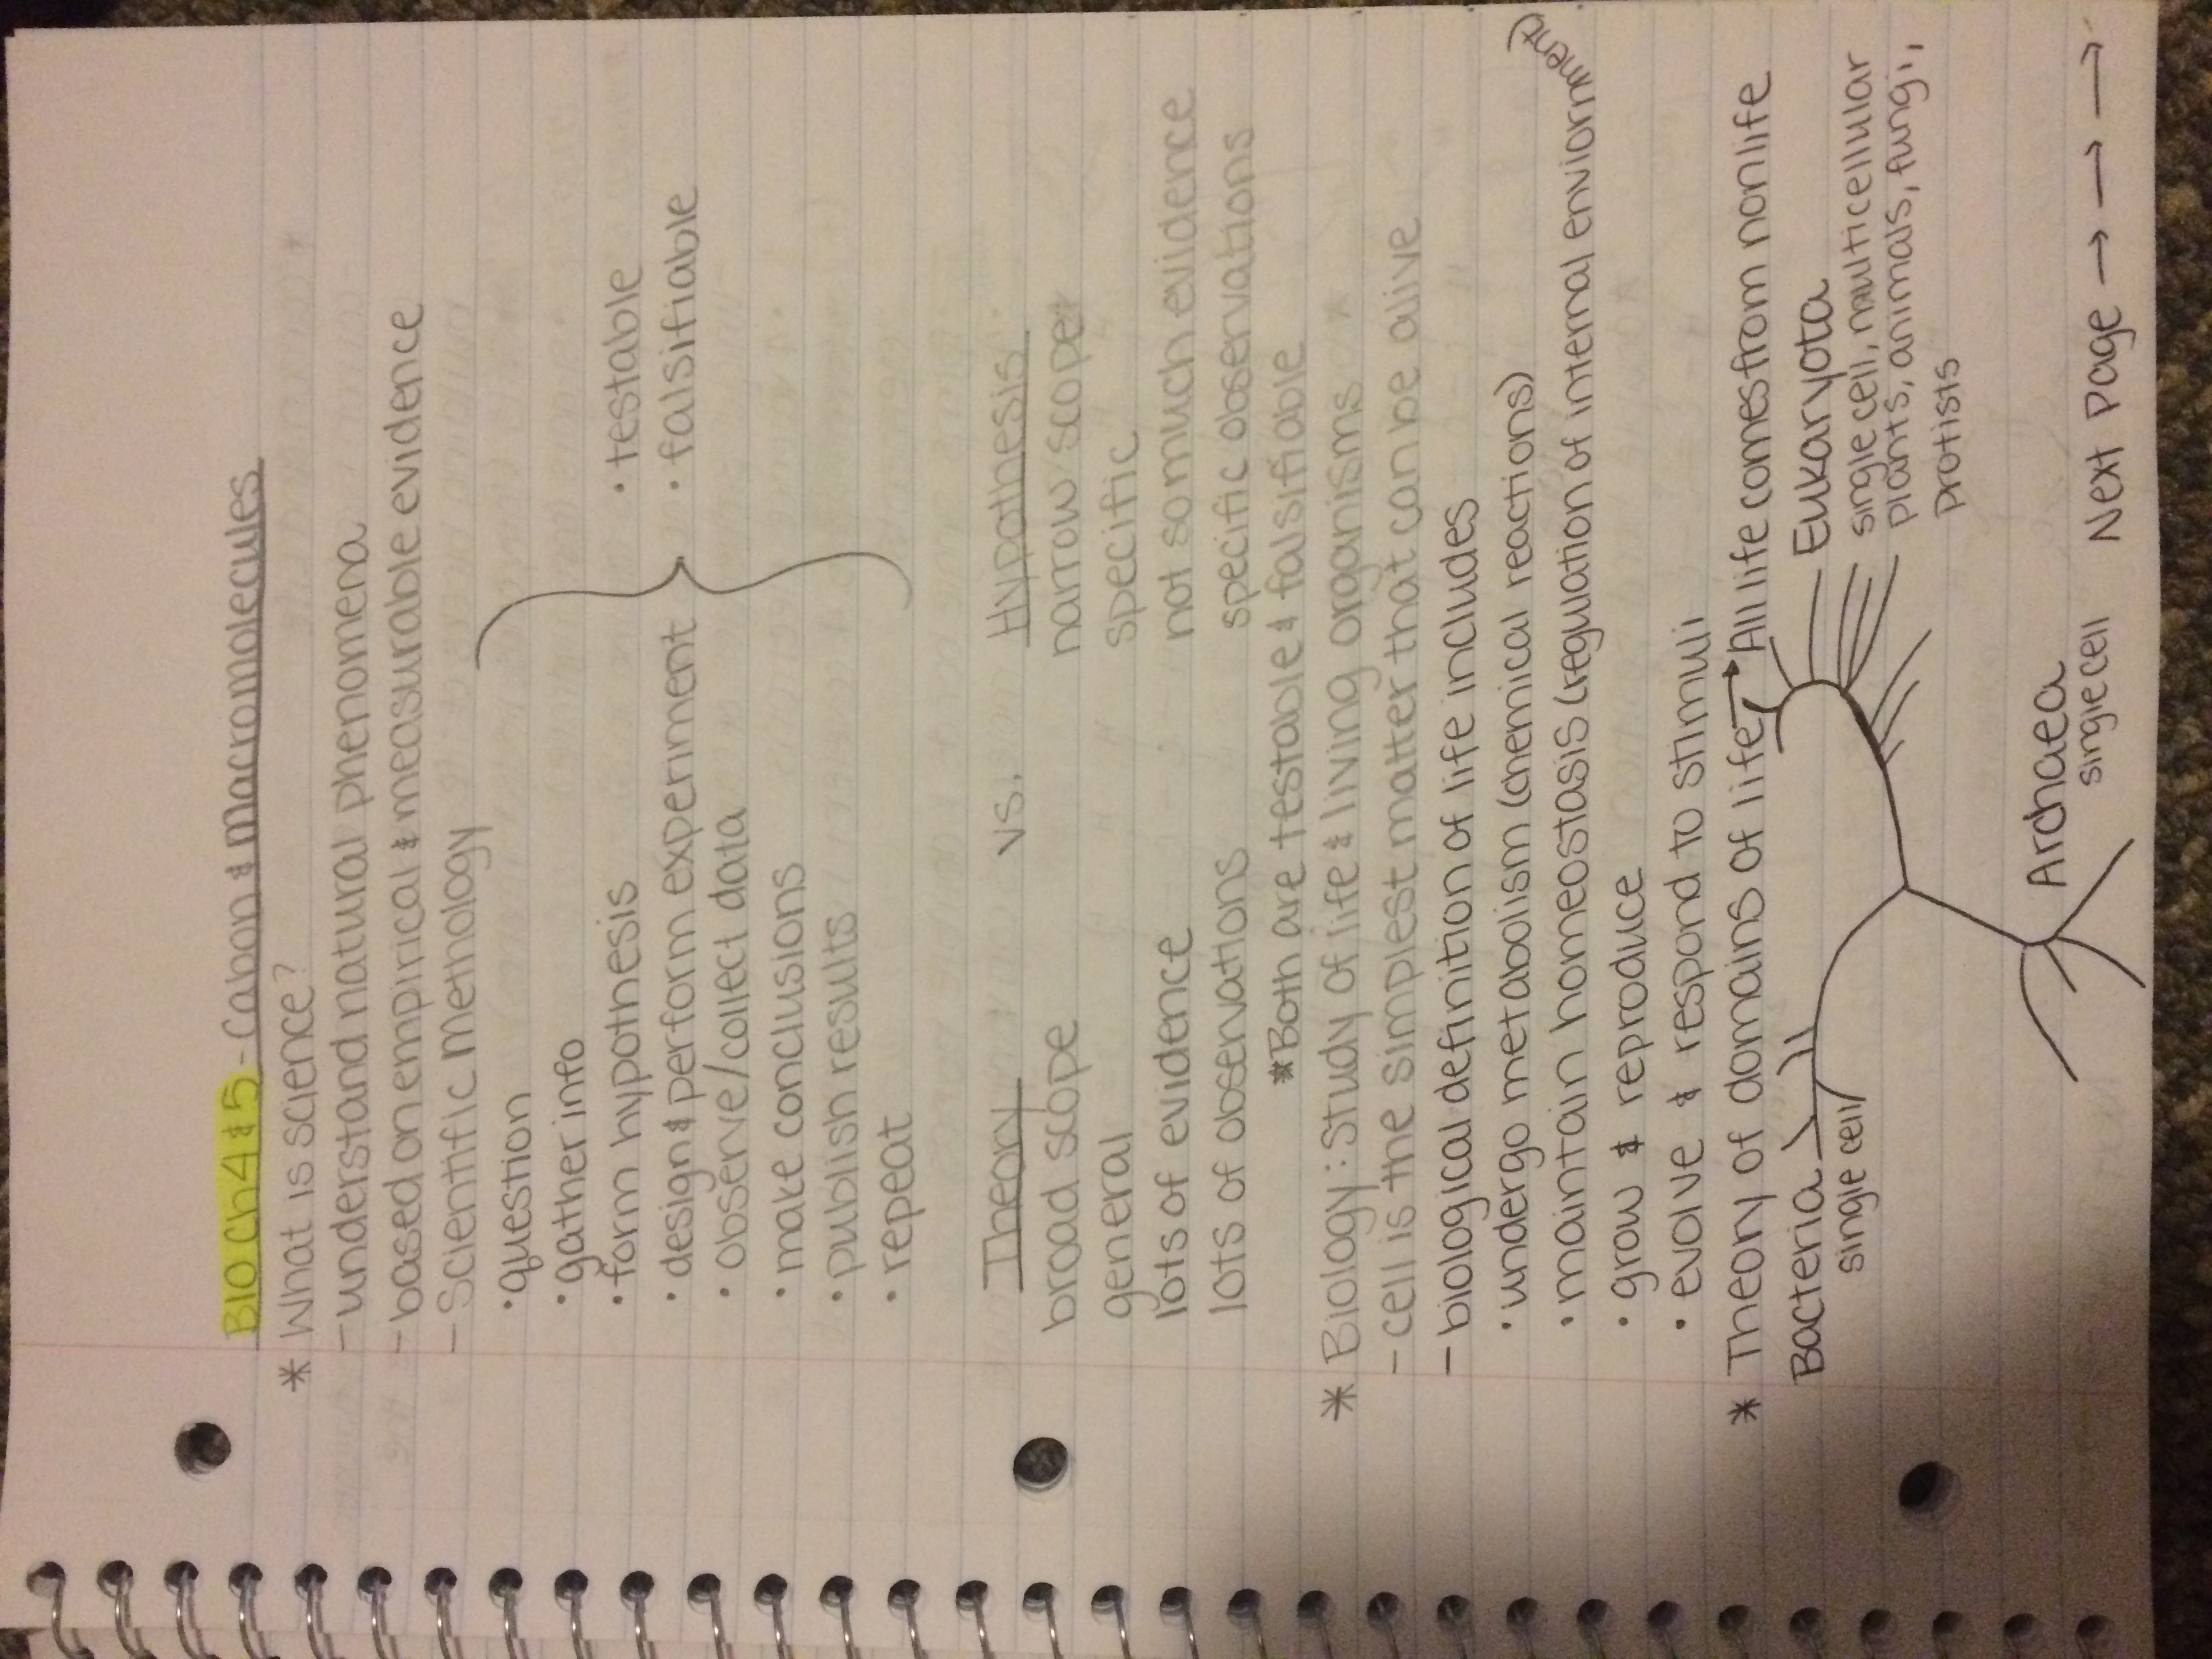 BIO Ch4 & 5 - Cabon & Macromolecules
* What is science?
- understand natural phenomena
- based on empirical & measurable evidence
- Scientific Methology
• question
• gather info
• form hypothesis
• testable
• design & perform experiment
• falsifiable
• observe/collect data
• make conclusions
• publish results
• repeat
Theory vs. Hypothesis
broad scope narrow scope
general specific
lots of evidence not so much evidence
lots of observations specific observations
*Both are testable & falsifiable
* Biology: Study of life & living organisms
- cell is the simplest matter that can be alive
- biological definition of life includes
• undergo metabolism (chemical reactions)
• maintain homeostasis (regulation of internal enviornment)
• grow & reproduce
• evolve & respond to stimuli
* Theory of domains of life → All life comes from nonlife
Bacteria
single cell
Eukaryota
single cell, multicellular
plants, animals, fungi,
protists
Archaea
single cell
Next Page → → →